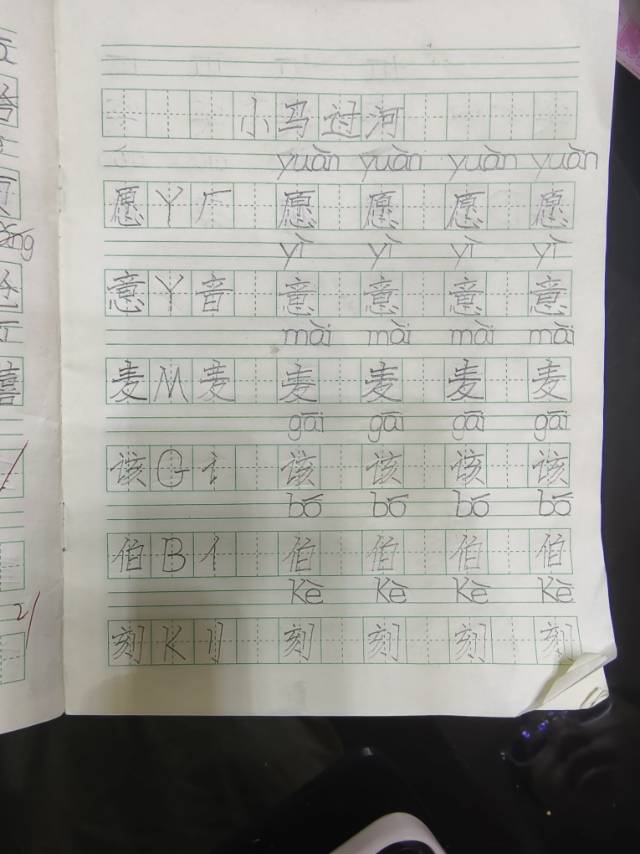 小马过河
yuàn yuàn yuàn yuàn
愿 Y 厂 愿 愿 愿 愿
yì yì yì yì
意 Y 音 意 意 意 意
mài mài mài mài
麦 M 麦 麦 麦 麦 麦
gāi gāi gāi gāi
该 G 讠 该 该 该 该
bó bó bó bó
伯 B 亻 伯 伯 伯 伯
Kè Kè Kè Kè
刻 K 刂 刻 刻 刻 刻